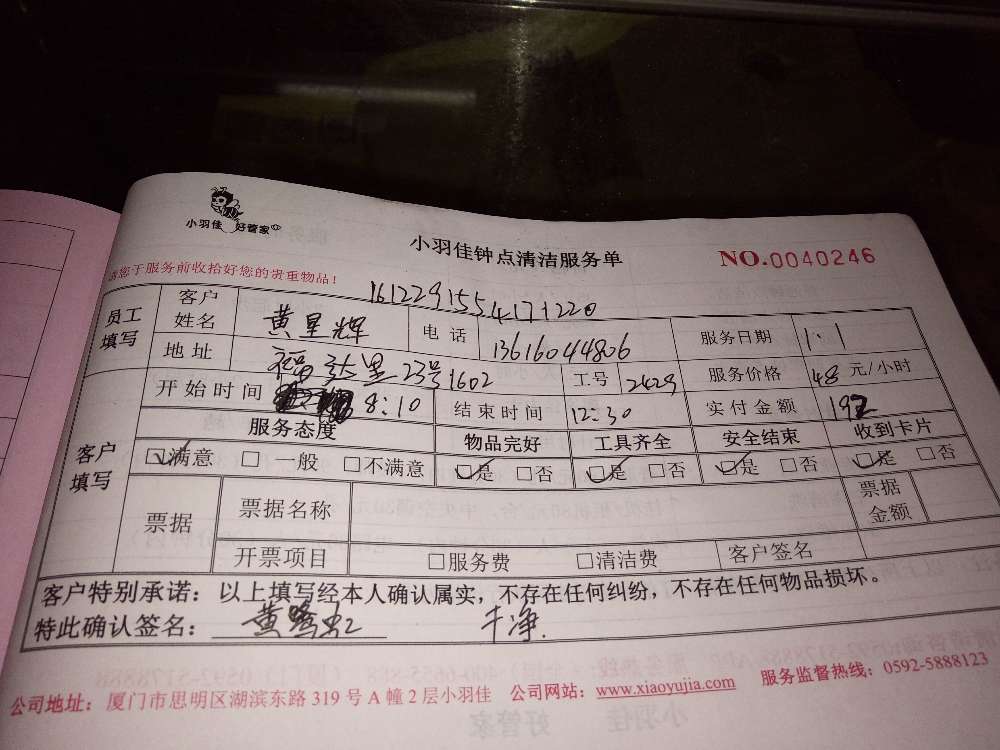 小羽佳 好管家
小羽佳钟点清洁服务单 NO.0040246
请您于服务前收拾好您的贵重物品！
1612291554171220
员工填写 客户姓名 黄星辉 电话 13616044806 服务日期 1.1
地址 23号1602 工号 2429 服务价格 48 元/小时
客户填写 开始时间 8:10 结束时间 12:30 实付金额 192
服务态度 物品完好 工具齐全 安全结束 收到卡片
☑满意 □一般 □不满意 ☑是 □否 ☑是 □否 ☑是 □否 ☑是 □否
票据 票据名称 票据金额
开票项目 □服务费 □清洁费 客户签名
客户特别承诺：以上填写经本人确认属实，不存在任何纠纷，不存在任何物品损坏。
特此确认签名： 干净.
公司地址：厦门市思明区湖滨东路319号A幢2层小羽佳 公司网站：www.xiaoyujia.com 服务监督热线：0592-5888123